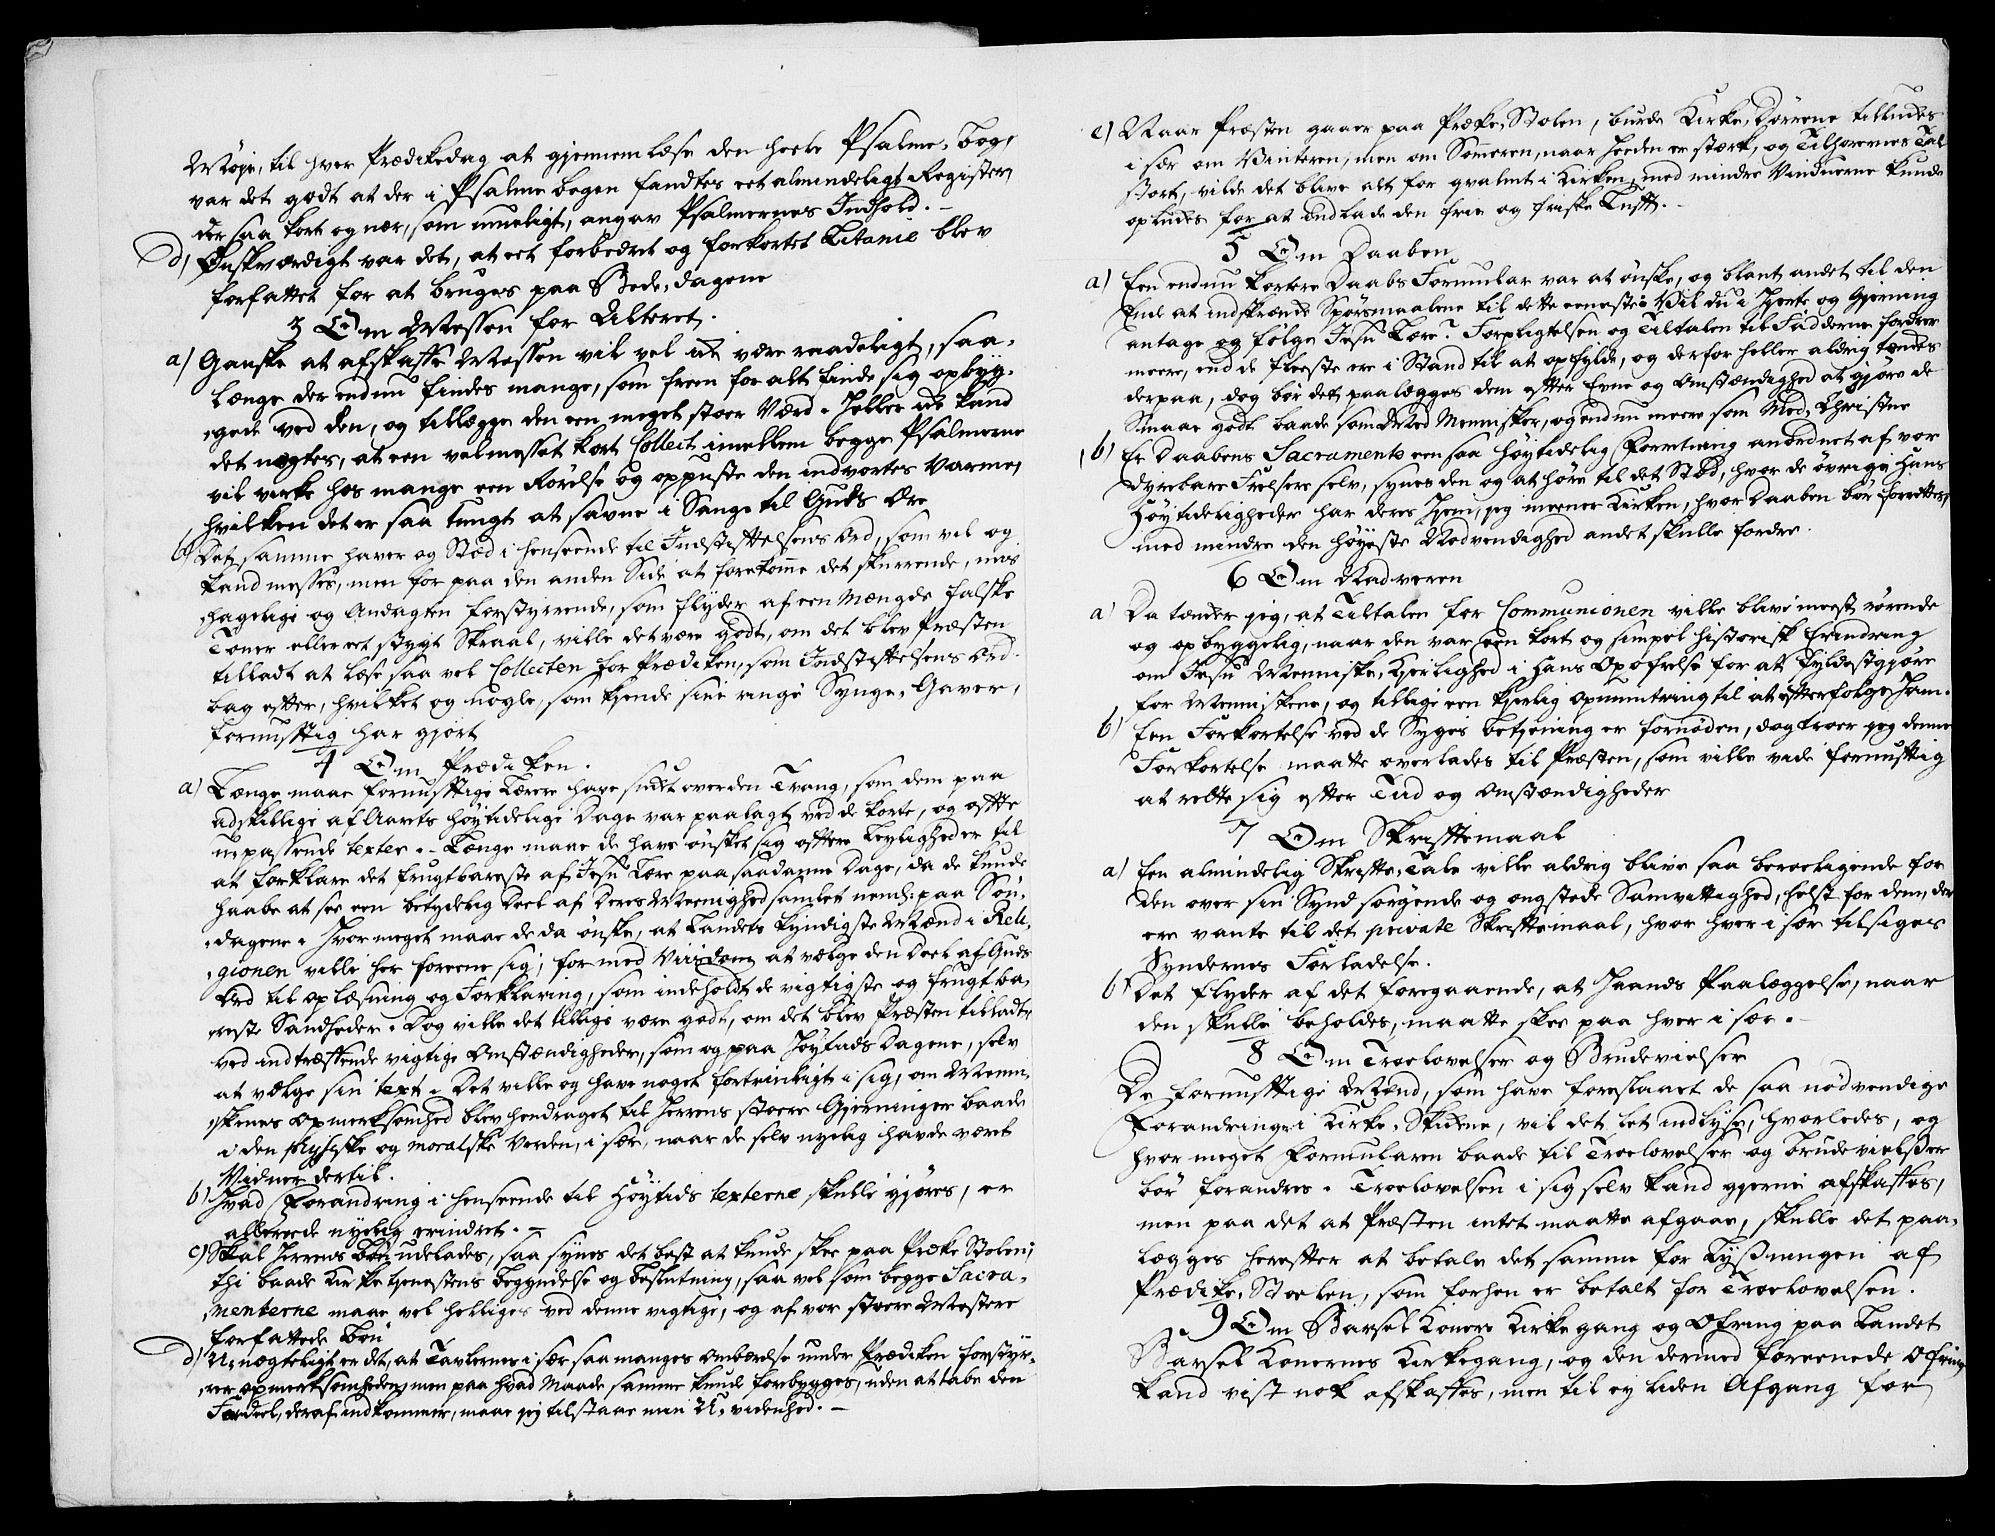 Møje, til hver Prædikedag at gjennemlæse den heele Psalme-Bog,
var det godt at der i Psalmebogen fandtes eet almindeligt Register,
der saa kort og nær, som mueligt, angav Psalmernes Indhold. -
d) Ønskværdigt var det, at eet forbedret og forkortet Litanie blev
forfattet for at bruges paa Bede-dagene
3 Om Messen for Alteret.
a) Ganske at afskaffe Messen vil vel ei være raadeligt, saa-
længe der endnu findes mange, som frem for alt finde sig opbyg-
gede ved den, og tillægge den een meget stoer Værd. Heller ei kand
det nægtes, at een velmesset kort Collect imellem begge Psalmerne
vil virke hos mange een Rörelse og oppuste den indvortes Varme,
hvilken det er saa tungt at savne i Sange til Guds Ære
b) Det samme haver og Stæd i henseende til Indstiftelsens Ord, som vel og
kand messes, men for paa den anden Side at forekomme det skurrende, mis-
hagelige og Andagten forstyrrende, som flyder af een Mængde falske
Toner eller eet stygt Skraal, ville det være godt, om det blev Præsten
tilladt at læse saa vel Collecten for Prædiken, som Indstiftelsens Ord
bag efter, hvilket og nogle, som kjende sine ringe Synge-Gaver,
fornuftig har gjort
4 Om Prædiken.
a) Længe maae fornuftige Lærere have sukket over den Trang, som dem paa
adskillige af Aarets høytidelige Dage var paalagt ved de korte, og ofte
upassende texter. - Længe maae de have ønsket sig oftere Leyligheder til
at forklare det frugtbareste af Jesu Lære paa saadanne Dage, da de kunde
haabe at see een betydelig Deel af Deres Meenighed samlet nemlig: paa Søn-
dagene. Hvor meget maae de da ønske, at Landets kyndigste Mænd i Reli-
gionen ville her foreene sig, for med Viisdom at vælge den Deel af Guds
Ord til Oplæsning og Forklaring, som indeholdt de vigtigste og frugtba-
reste Sandheder. Dog ville det tillige være godt, om det blev Præsten tilladt,
ved indtræffende vigtige Omstændigheder, som og paa Høytids Dagene, selv
at vælge sin text. Det ville og have noget fortrinligt i sig, om Menne-
skenes Opmerksomhed blev hendraget til Herrens stoere Gjerninger baade
i den physiske og moralske Verden, i sær, naar de selv nyelig havde været
Vidner dertil.
b) Hvad Forandring i henseende til Høytids texterne skulle gjøres, er
allerede nyelig erindret. -
c) Skal Herrens Bøn udelades, saa synes det best at kunde skee paa Præke Stolen;
thi baade Kirketjenestens begyndelse og beslutning, saa vel som begge Sacra-
menterne maae vel helliges ved denne vigtige, og af vor stoere Mestere
forfattede Bøn
d) U-nægteligt er det, at Tavlernes i sær saa manges Ombærelse under Prædiken forstyr-
rer opmerksomheden, men paa hvad Maade samme kunde forbygges, uden at tabe den
Fordeel, deraf indkommer, maae jeg tilstaae min U-videnhed. -
e) Naar Præsten gaaer paa Præke-Stolen, burde Kirke-Dørrene tilludes
i sær om Vinteren, men om Sommeren, naar Heeden er stærk, og Tilhørernes Tal
stort, vilde det blive alt for qvalmt i Kirken, med mindre Vinduerne kunde
opludes for at indlade den frie og friske Luft. -
5 Om Daaben
a) Een endnu kortere Daabs Formular var at ønske, og blant andet til den
Ende at indskrænke Spørsmaalene til dette eeneste: Vil du i Hjerte og Gjerning
antage og følge Jesu Lære? Forpligtelsen og Tiltalen til Fadderne fordrer
meere, end de fleeste ere i Stand til at opfylde, og derfor heller aldrig tændes
derpaa, dog bør det paalægges dem efter Evne og Omstændighed at gjøre de
Smaae godt baade som Med Mennisker, og endnu meere som Med-Christne
b) Er Daabens Sacramente een saa høytidelig Forretning anordnet af vor
dyrebare Frelsere selv, synes den og at høre til det Stæd, hvor de øvrige Hans
Høytideligheder har deres Hjem, jeg meener Kirken, hvor Daaben bør forrettes,
med mindre den høyeste Nødvendighed andet skulle fordre.
6 Om Nadveren
a) Da tænker jeg, at Tiltalen for Communionen ville blive meest rörende
og opbyggelig, naar den var een kort og simpel historisk Erindring
om Jesu Menniske-Kjerlighed i Hans Opofrelse for at fyldestgjøre
for Menniskene, og tillige een kjerlig Opmuntring til at efterfølge Ham.
b) Een Forkortelse ved de Syges betjening er fornøden, dog troer jeg denne
Forkortelse maatte overlades til Præsten, som ville vide fornuftig
at rette sig efter Tid og Omstændigheder
7 Om Skriftemaal
a) Een almindelig Skrifte-Tale ville aldrig blive saa beroeligende for
den over sin Synd sørgende og ængstede Samvittighed, helst for dem, der
ere vante til det private Skriftemaal, hvor hver i sær tilsiges
Syndernes Forladelse.
b) Det flyder af det foregaaende, at Haands Paalæggelse, naar
den skulle beholdes, maatte skee paa hver i sær. -
8 Om Troelovelser og Brudevielser
De fornuftige Mænd, som have foreslaaet de saa nødvendige
Forandringer i Kirke-Skikene, vil det let indlyse, hvorledes, og
hvor meget Formularen baade til Troelovelser og Brudevielser
bør forandres. Troelovelsen i sig selv kand gjerne afskaffes,
men paa det at Præsten intet maatte afgaae, skulle det paa-
lægges herefter at betale det samme for Lysningen af
Prædike-Stoelen, som forhen er betalt for Troelovelsen.
9 Om Barsel Koners Kirkegang og Ofring paa Landet
Barsel Konernes Kirkegang, og den dermed foreenede Ofring
kand vist nok afskaffes, men til ej liden Afgang for